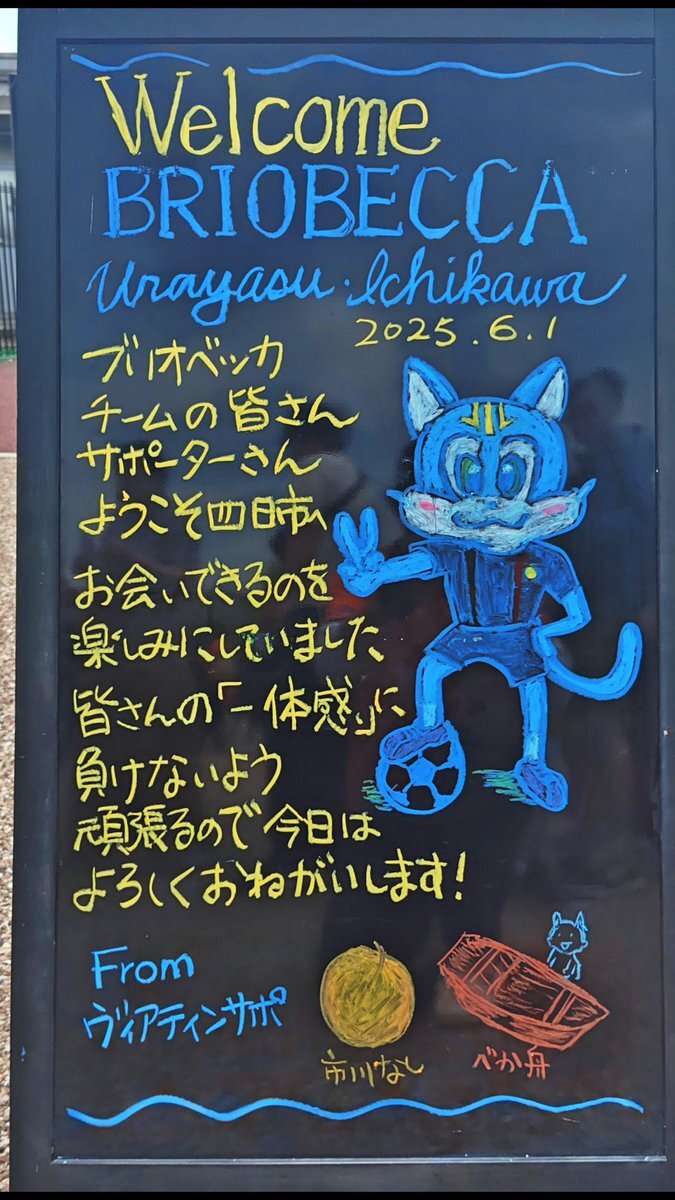 Welcome
BRIOBECCA
Urayasu・Ichikawa
2025.6.1
ブリオベッカ
チームの皆さん
サポーターさん
ようこそ四日市へ
お会いできるのを
楽しみにしていました
皆さんの「一体感」に
負けないよう
頑張るので今日は
よろしくおねがいします!
From
ヴィアティンサポ
市川なし
べか舟